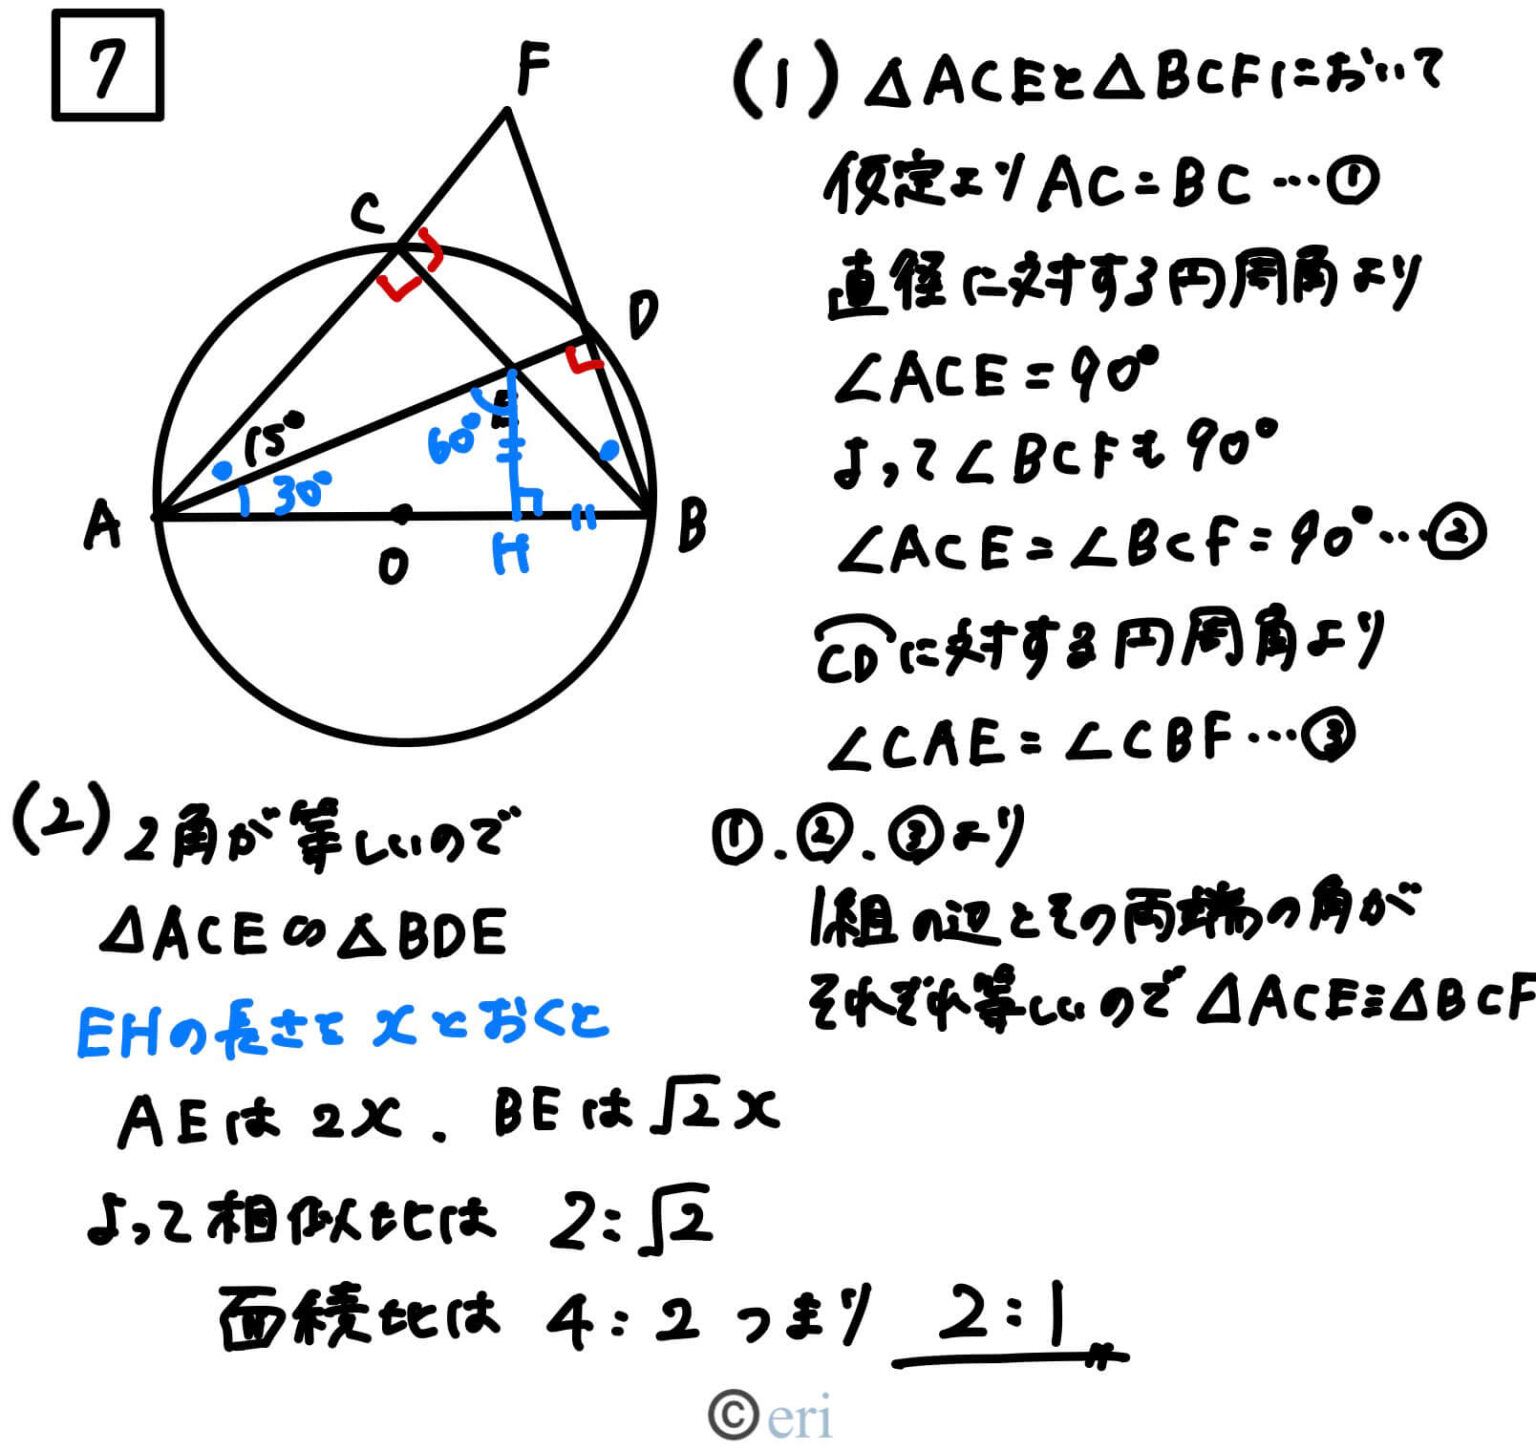 7
F
C
D
15°
E
60°
30°
A
B
O
H
(1) △ACEと△BCFにおいて
仮定より AC=BC …①
直径に対する円周角より
∠ACE=90°
よって∠BCFも90°
∠ACE=∠BCF=90°…②
CDに対する円周角より
∠CAE=∠CBF…③
①.②.③より
1組の辺とその両端の角が
それぞれ等しいので △ACE≡△BCF
(2) 2角が等しいので
△ACE∽△BDE
EHの長さを xとおくと
AEは 2x. BEは√2x
よって相似比は 2:√2
面積比は 4:2 つまり 2:1
©eri